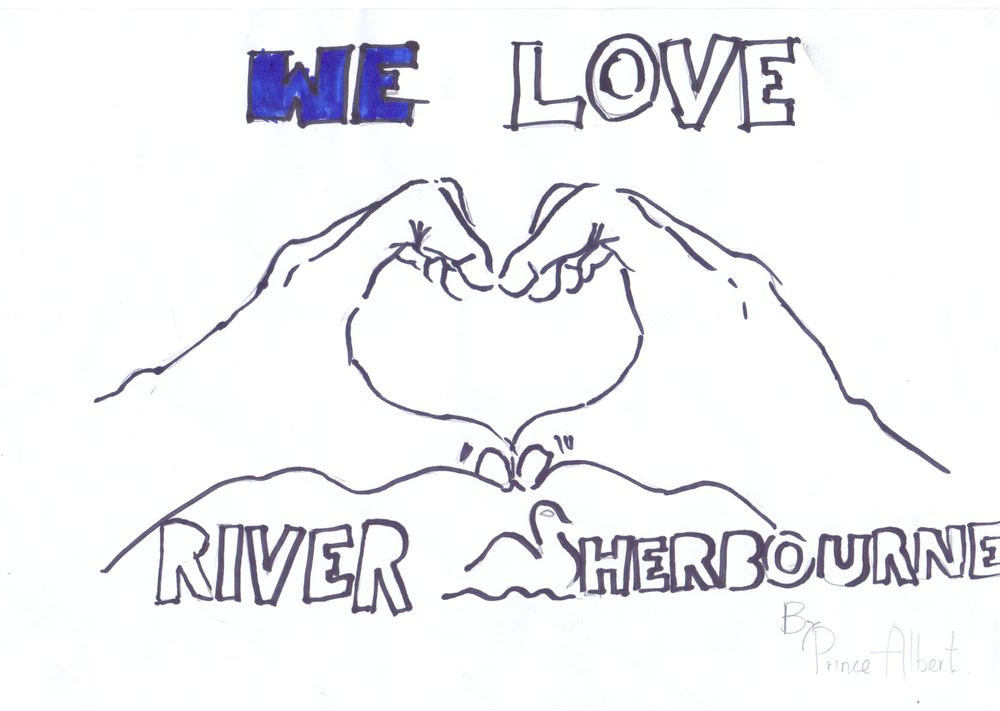 WE LOVE
RIVER SHERBOURNE
By
Prince Albert